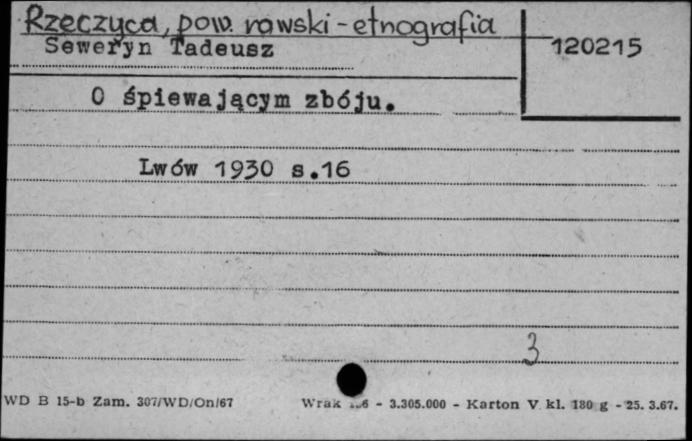 Rzeczyca, pow. rawski - etnografia
Seweryn Tadeusz
120215
O śpiewającym zbóju.
Lwów 1930 s.16
3
WD B 15-b Zam. 307/WD/On/67
Wrak - 3.305.000 - Karton V kl. 180 g - 25. 3.67.